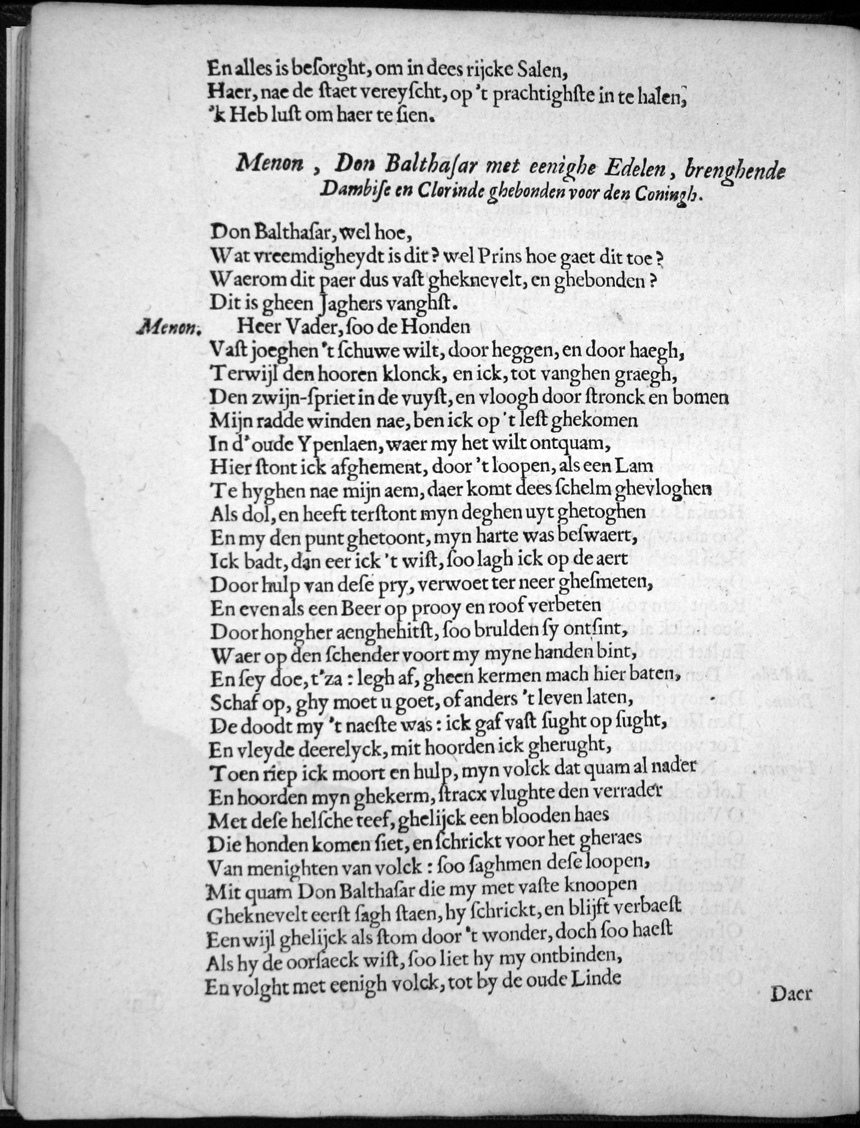 En alles is beſorght, om in dees rijcke Salen,
Haer, nae de ſtaet vereyſcht, op 't prachtighſte in te halen,
'k Heb luſt om haer te ſien.
Menon, Don Balthaſar met eenighe Edelen, brenghende
Dambiſe en Clorinde ghebonden voor den Coningh.
Don Balthaſar, wel hoe,
Wat vreemdigheydt is dit? wel Prins hoe gaet dit toe?
Waerom dit paer dus vaſt gheknevelt, en ghebonden?
Dit is gheen Jaghers vanghſt.
Menon. Heer Vader, ſoo de Honden
Vaſt joeghen 't ſchuwe wilt, door heggen, en door haegh,
Terwijl den hooren klonck, en ick, tot vanghen graegh,
Den zwijn-ſpriet in de vuyſt, en vloogh door ſtronck en bomen
Mijn radde winden nae, ben ick op 't leſt ghekomen
In d' oude Ypenlaen, waer my het wilt ontquam,
Hier ſtont ick afghement, door 't loopen, als een Lam
Te hyghen nae mijn aem, daer komt dees ſchelm ghevloghen
Als dol, en heeft terſtont myn deghen uyt ghetoghen
En my den punt ghetoont, myn harte was beſwaert,
Ick badt, dan eer ick 't wiſt, ſoo lagh ick op de aert
Door hulp van deſe pry, verwoet ter neer gheſmeten,
En even als een Beer op prooy en roof verbeten
Door hongher aenghehitſt, ſoo brulden ſy ontſint,
Waer op den ſchender voort my myne handen bint,
En ſey doe, t'za: legh af, gheen kermen mach hier baten,
Schaf op, ghy moet u goet, of anders 't leven laten,
De doodt my 't naeſte was: ick gaf vaſt ſught op ſught,
En vleyde deerelyck, mit hoorden ick gherught,
Toen riep ick moort en hulp, myn volck dat quam al nader
En hoorden myn ghekerm, ſtracx vlughte den verrader
Met deſe helſche teef, ghelijck een blooden haes
Die honden komen ſiet, en ſchrickt voor het gheraes
Van menighten van volck: ſoo ſaghmen deſe loopen,
Mit quam Don Balthaſar die my met vaſte knoopen
Gheknevelt eerſt ſagh ſtaen, hy ſchrickt, en blijft verbaeſt
Een wijl ghelijck als ſtom door 't wonder, doch ſoo haeſt
Als hy de oorſaeck wiſt, ſoo liet hy my ontbinden,
En volght met eenigh volck, tot by de oude Linde
Daer